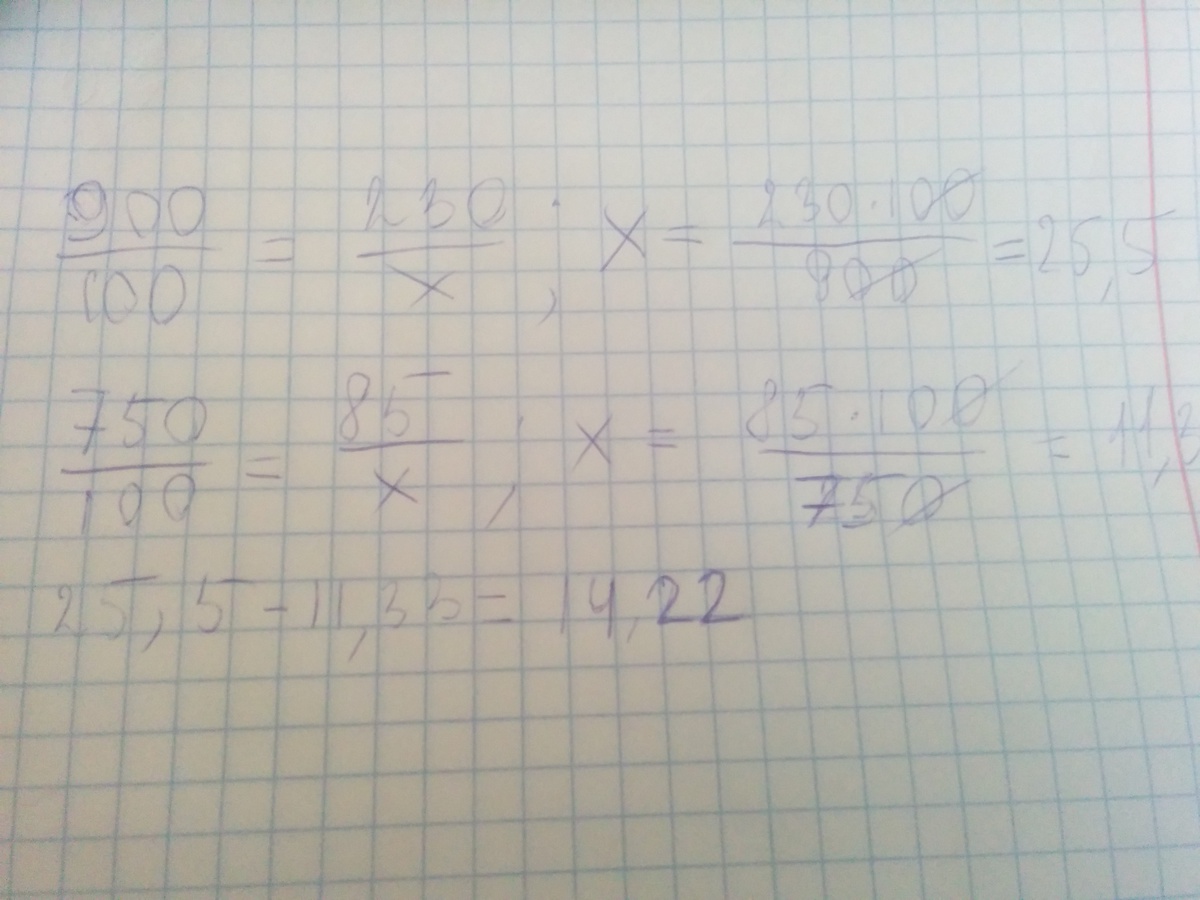 900/100 = 230/x ; x = 230·100/900 = 25,5
750/100 = 85/x ; x = 85·100/750 = 11,3
25,5-11,33= 14,22